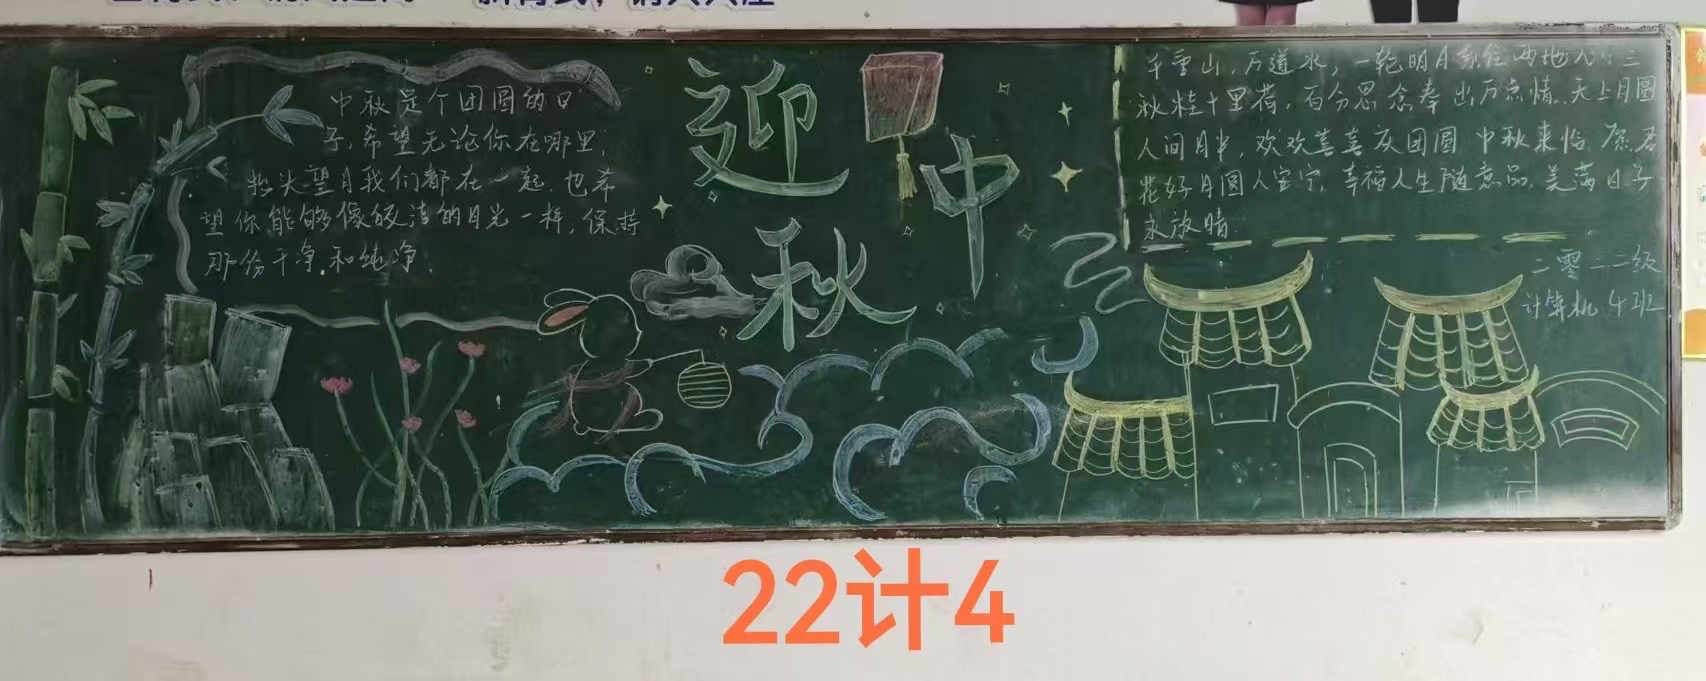 迎中秋
中秋是个团圆的日
子，希望无论你在哪里，
抬头望月我们都在一起.也希
望你能够像皎洁的月光一样，保持
那份干净.和纯净.
千重山，万道水，一轮明月牵住两地人；三
秋桂十里荷，百分思念牵出万点情.天上月圆
人间月半，欢欢喜喜庆团圆 中秋来临 愿君
花好月圆人安宁，幸福人生随意品，美满日子
永放晴.
二零二二级
计算机4班
22计4